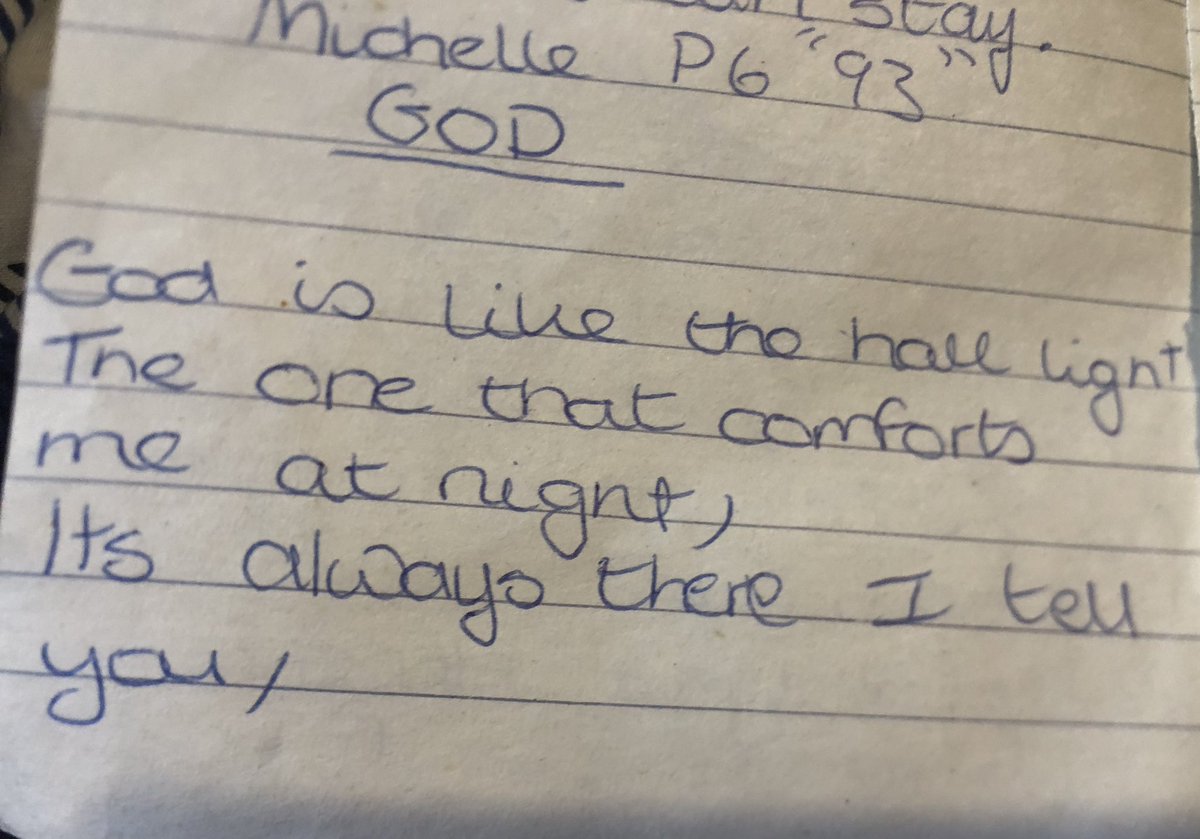 stay.
Michelle P6 "93"
GOD
God is like the hall light
The one that comforts
me at night,
Its always there I tell
you,